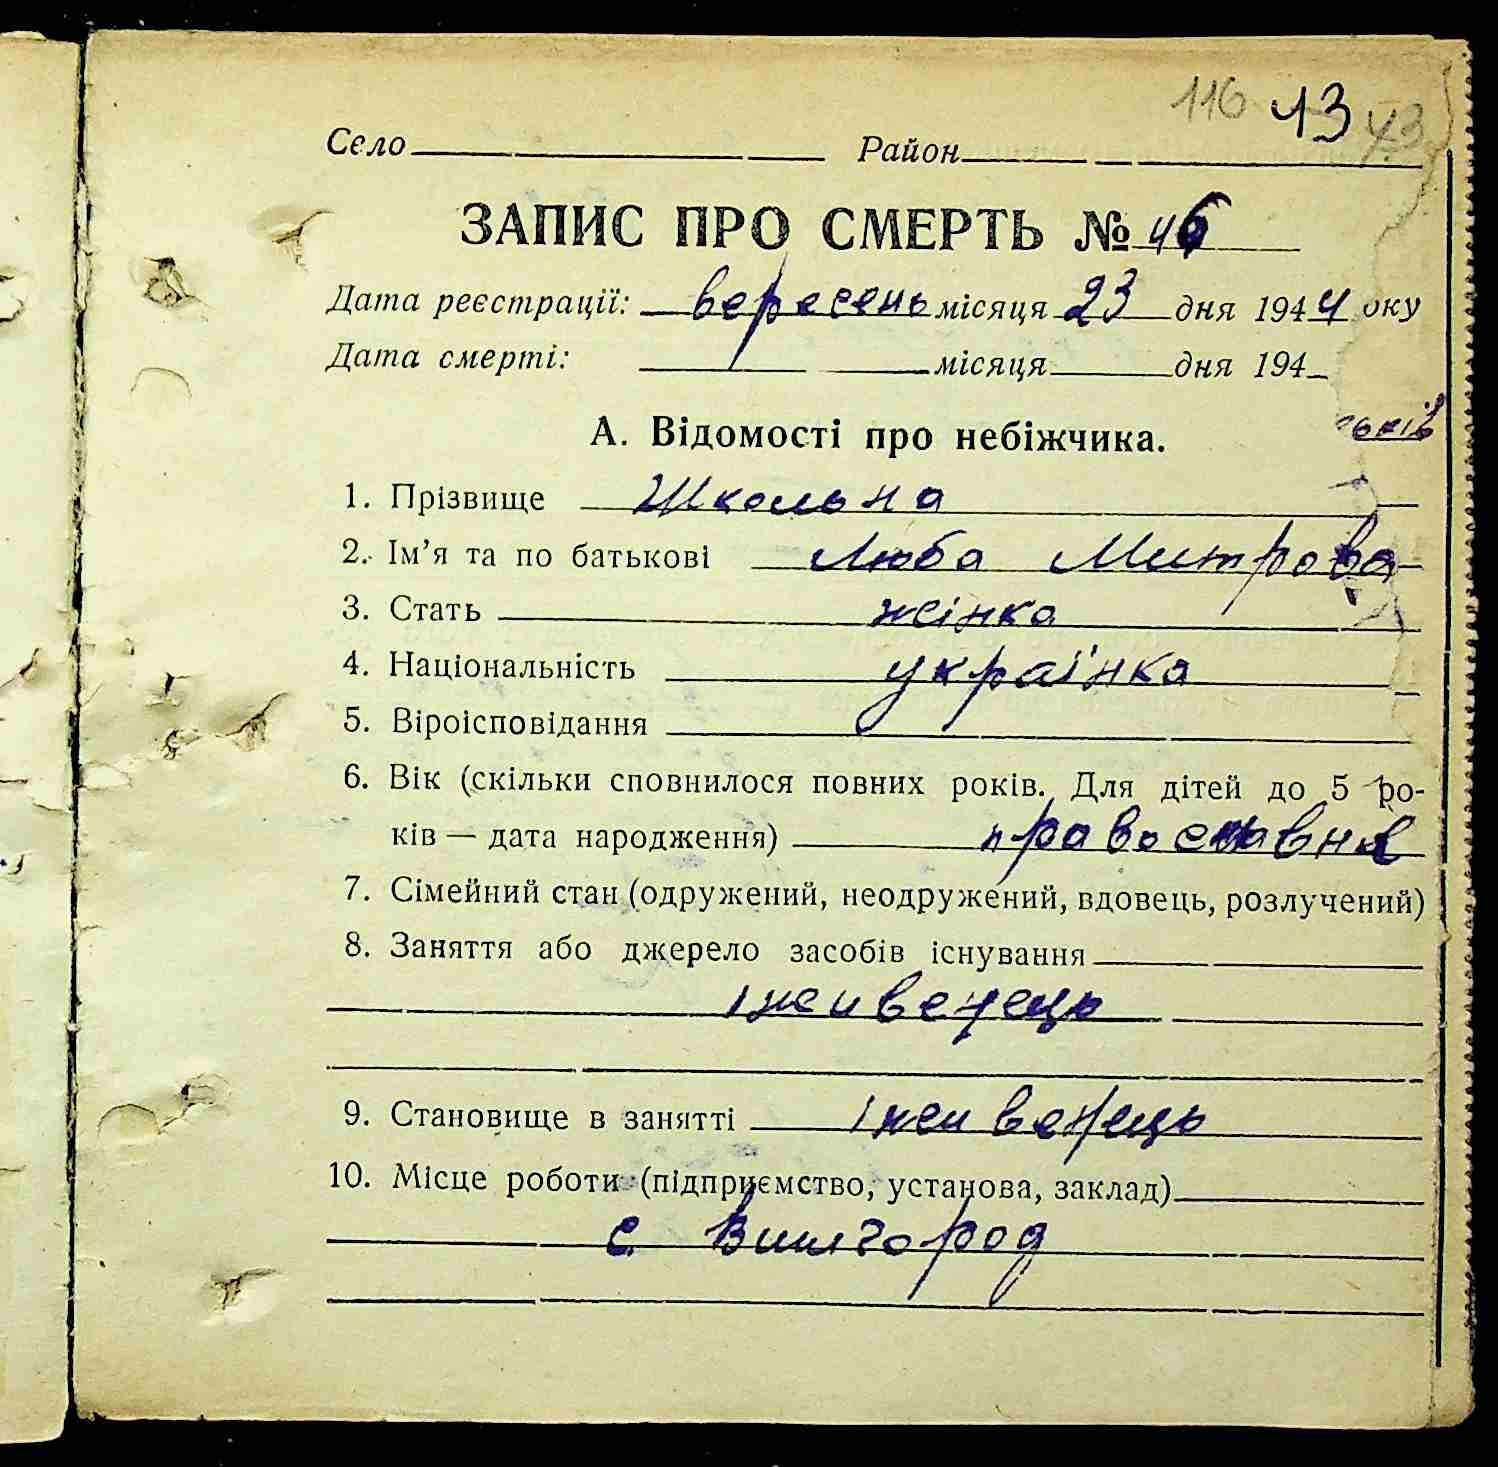 116 43 43
Село Район
ЗАПИС ПРО СМЕРТЬ № 46
Дата реєстрації: вересень місяця 23 дня 1944 оку
Дата смерті: місяця дня 194
А. Відомості про небіжчика.
1. Прізвище Школьна
2. Ім’я та по батькові Люба Митрова
3. Стать жінка
4. Національність українка
5. Віроісповідання
6. Вік (скільки сповнилося повних років. Для дітей до 5 ро-
ків — дата народження) православна
7. Сімейний стан (одружений, неодружений, вдовець, розлучений)
8. Заняття або джерело засобів існування
іживенець
9. Становище в занятті іживенець
10. Місце роботи (підприємство, установа, заклад)
с. Вишгород